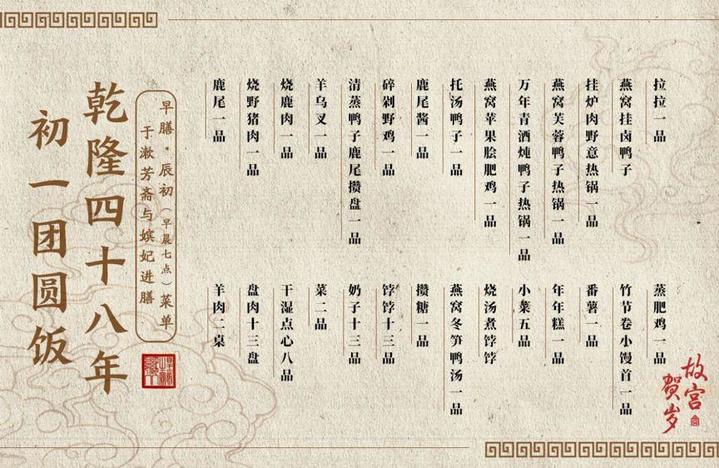 拉拉一品
燕窝挂卤鸭子
挂炉肉野意热锅一品
燕窝芙蓉鸭子热锅一品
万年青酒炖鸭子热锅一品
燕窝苹果脍肥鸡一品
托汤鸭子一品
鹿尾酱一品
碎剁野鸡一品
清蒸鸭子鹿尾攒盘一品
羊乌叉一品
烧鹿肉一品
烧野猪肉一品
鹿尾一品
蒸肥鸡一品
竹节卷小馒首一品
番薯一品
年年糕一品
小菜五品
烧汤煮饽饽
燕窝冬笋鸭汤一品
攒糖一品
饽饽十三品
奶子十三品
菜二品
干湿点心八品
盘肉十三盘
羊肉二桌
早膳·辰初（早晨七点）菜单
于漱芳斋与嫔妃进膳
乾隆四十八年
初一团圆饭
故宫
贺岁